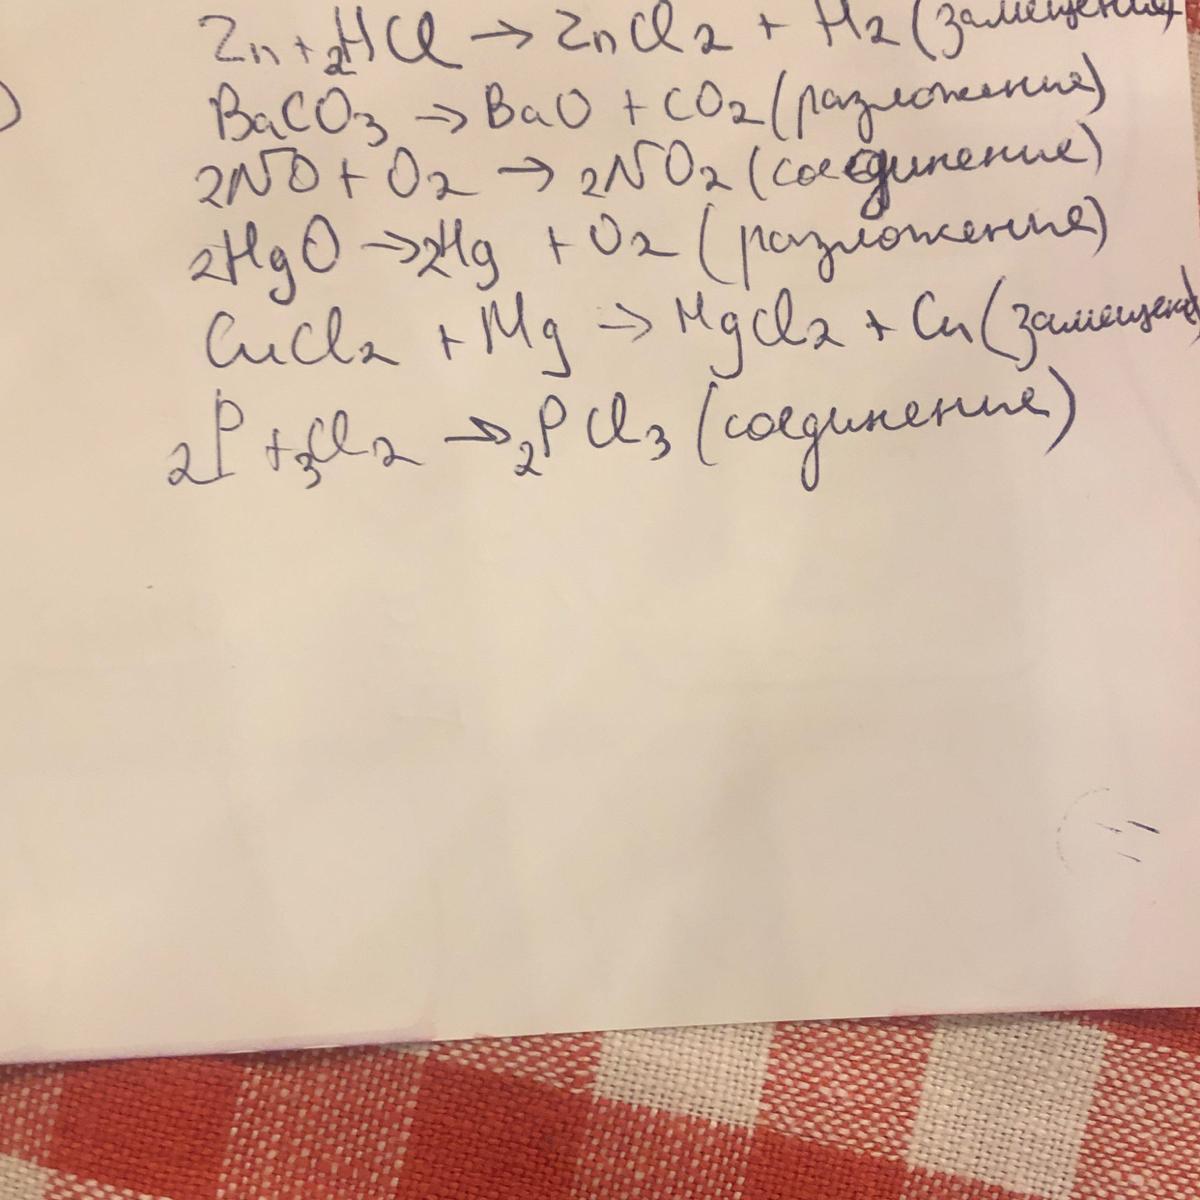 Zn + 2HCl → ZnCl2 + H2 (замещения)
)
BaCO3 → BaO + CO2 (разложения)
2NO + O2 → 2NO2 (соединение)
2HgO → 2Hg + O2 (разложение)
CuCl2 + Mg → MgCl2 + Cu (замещена)
2P + 3Cl2 → 2PCl3 (соединение)